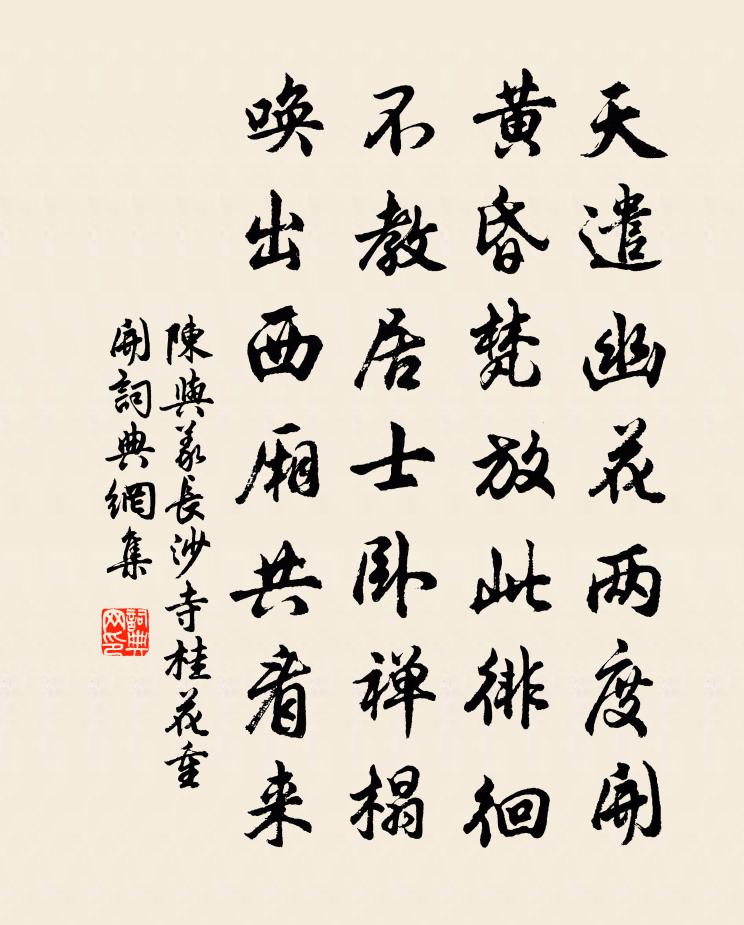 天遣幽花两度開
黄昏梵放此徘徊
不教居士卧禅榻
唤出西厢共看来
陳與義長沙寺桂花重
開詞典網集
詞典
网印